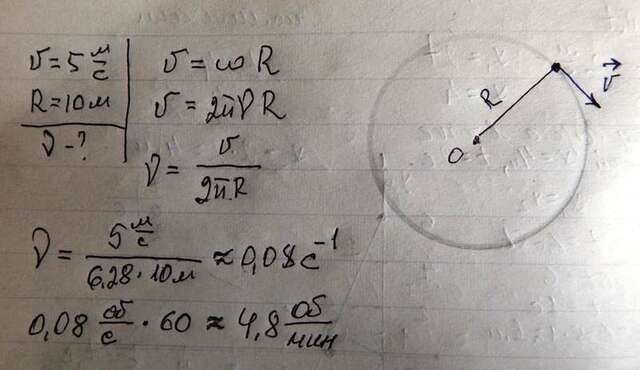 υ = 5 м/с
R = 10 м
ν - ?
υ = ω R
υ = 2π ν R
ν = υ / 2π R
R
O
υ⃗
ν = 5 м/с / 6,28 · 10 м ≈ 0,08 с⁻¹
0,08 об/с · 60 ≈ 4,8 об/мин